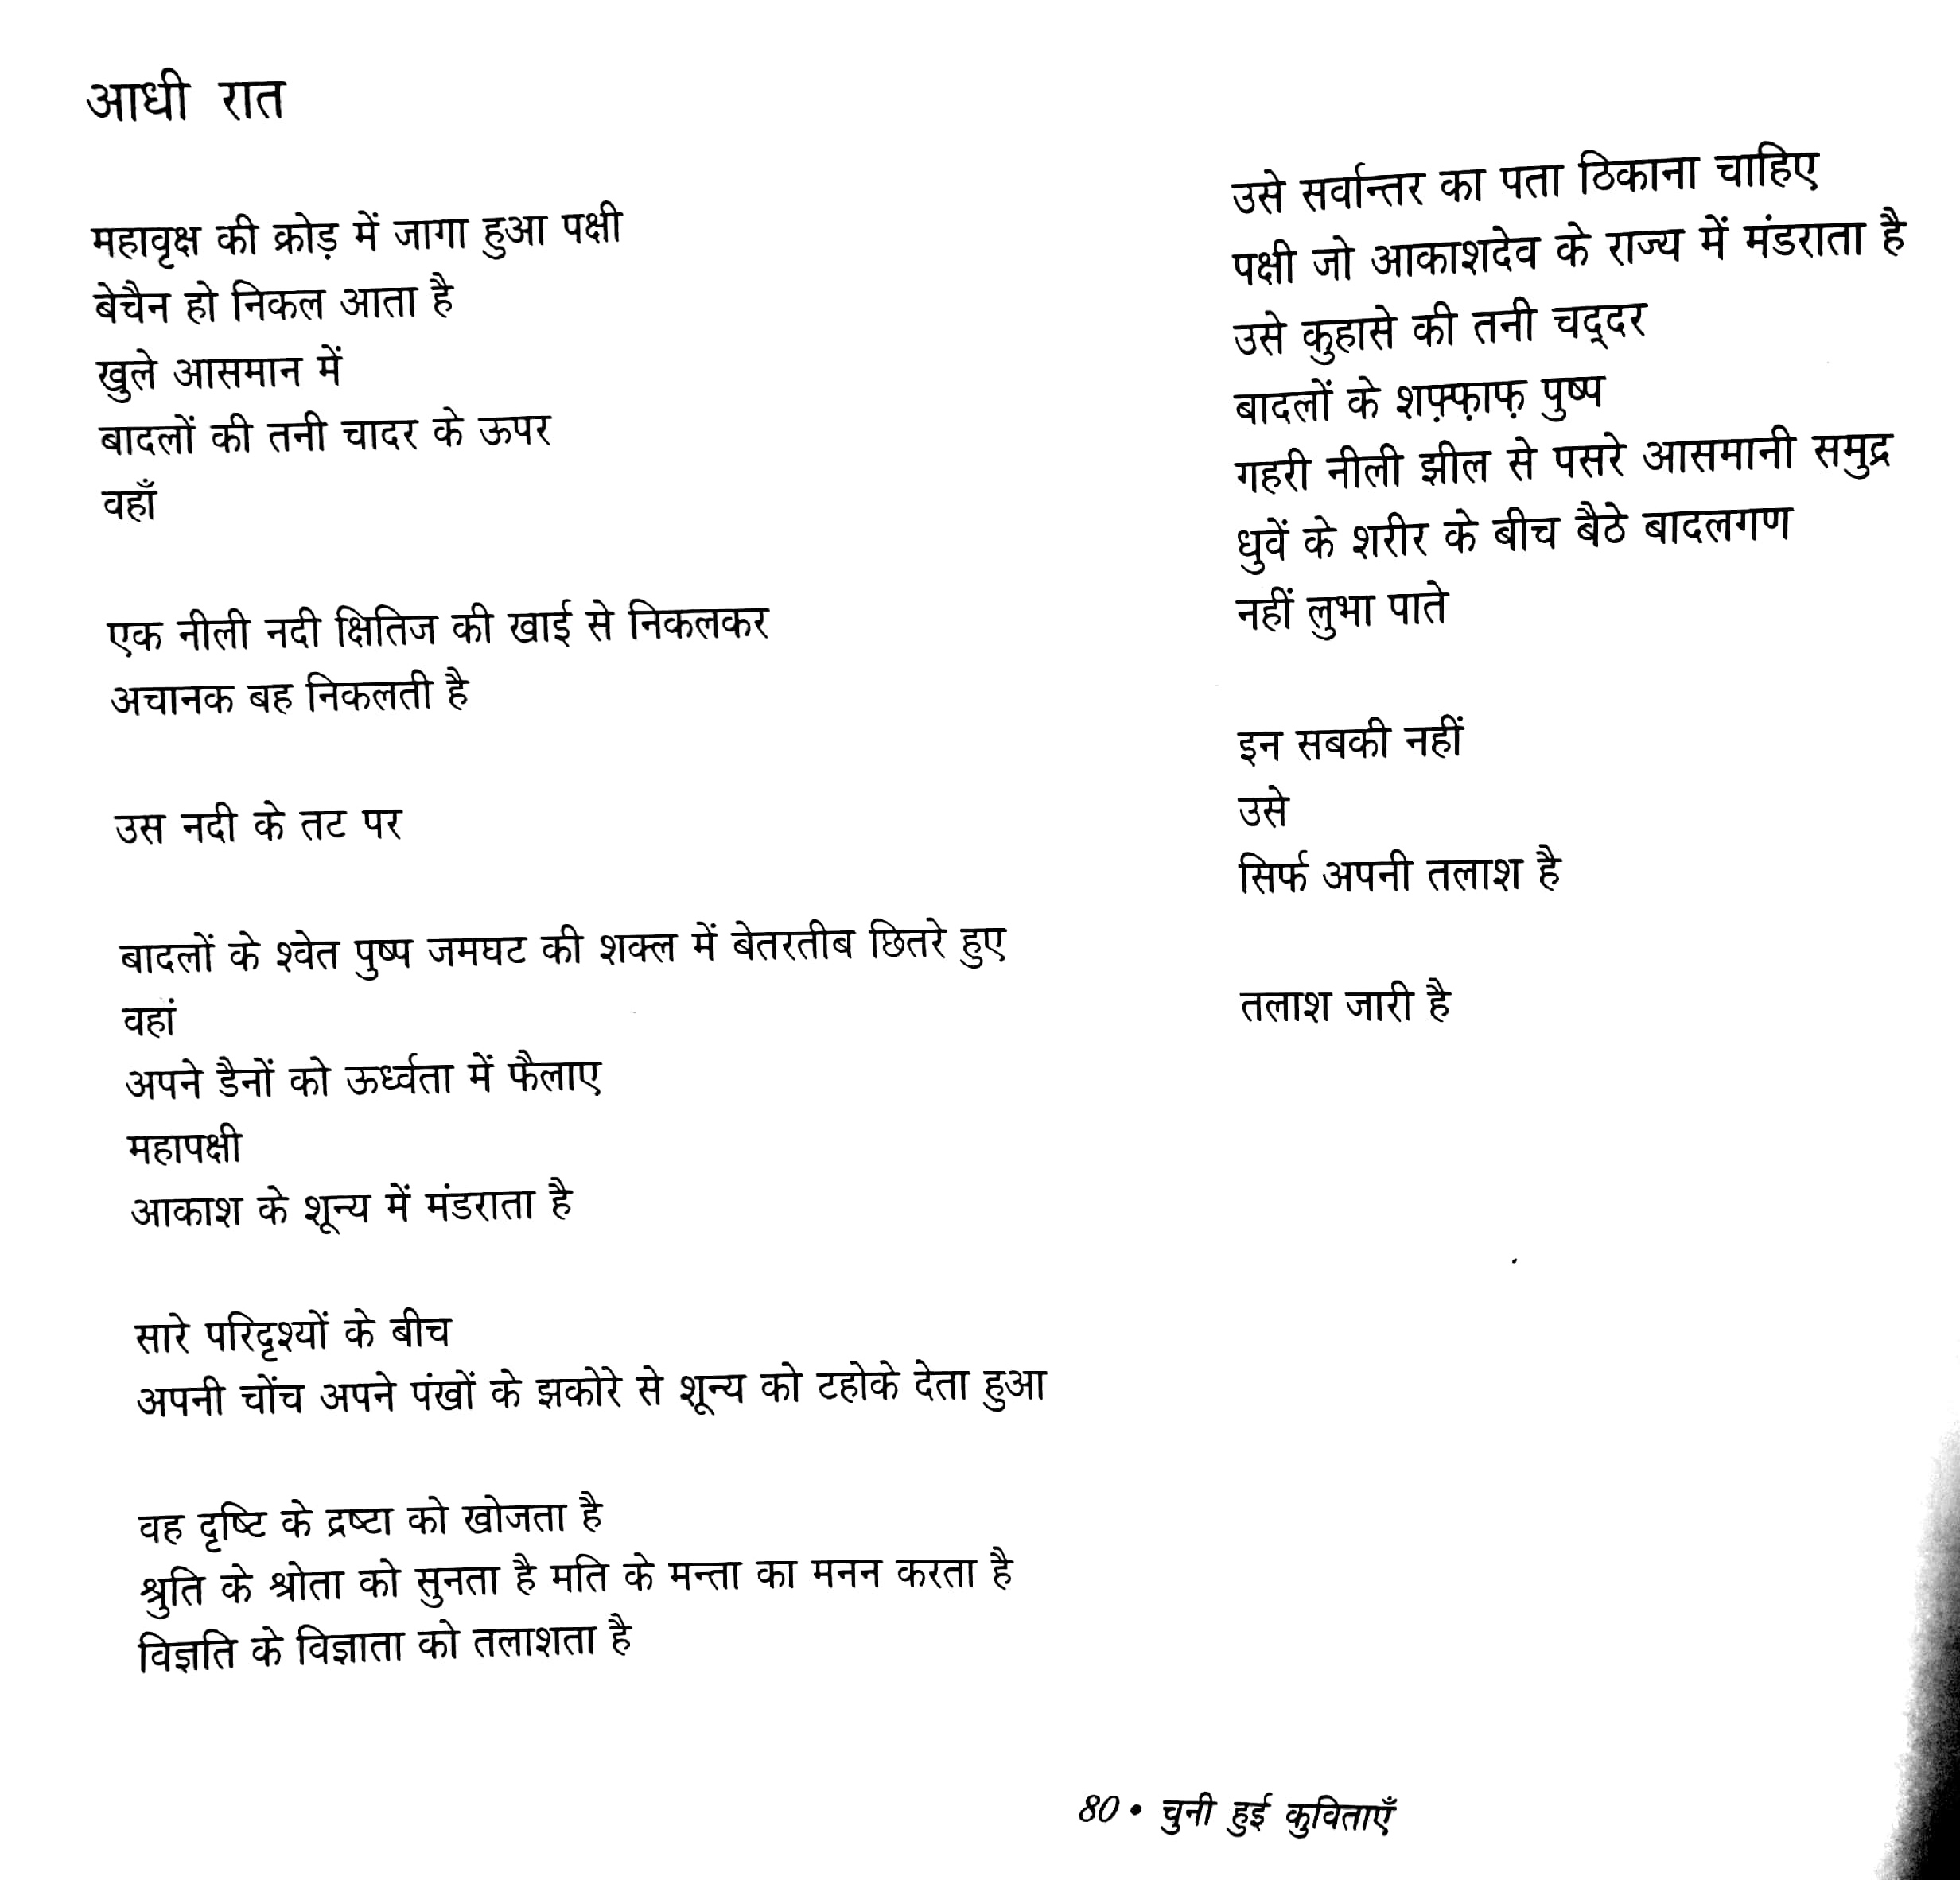 आधी रात
महावृक्ष की क्रोड़ में जागा हुआ पक्षी
बेचैन हो निकल आता है
खुले आसमान में
बादलों की तनी चादर के ऊपर
वहाँ
एक नीली नदी क्षितिज की खाई से निकलकर
अचानक बह निकलती है
उस नदी के तट पर
बादलों के श्वेत पुष्प जमघट की शक्ल में बेतरतीब छितरे हुए
वहां
अपने डैनों को ऊर्ध्वता में फैलाए
महापक्षी
आकाश के शून्य में मंडराता है
सारे परिदृश्यों के बीच
अपनी चोंच अपने पंखों के झकोरे से शून्य को टहोके देता हुआ
वह दृष्टि के द्रष्टा को खोजता है
श्रुति के श्रोता को सुनता है मति के मन्ता का मनन करता है
विज्ञति के विज्ञाता को तलाशता है
उसे सर्वान्तर का पता ठिकाना चाहिए
पक्षी जो आकाशदेव के राज्य में मंडराता है
उसे कुहासे की तनी चद्दर
बादलों के शफ़्फ़ाफ़ पुष्प
गहरी नीली झील से पसरे आसमानी समुद्र
धुवें के शरीर के बीच बैठे बादलगण
नहीं लुभा पाते
इन सबकी नहीं
उसे
सिर्फ अपनी तलाश है
तलाश जारी है
80 • चुनी हुई कुविताएँ